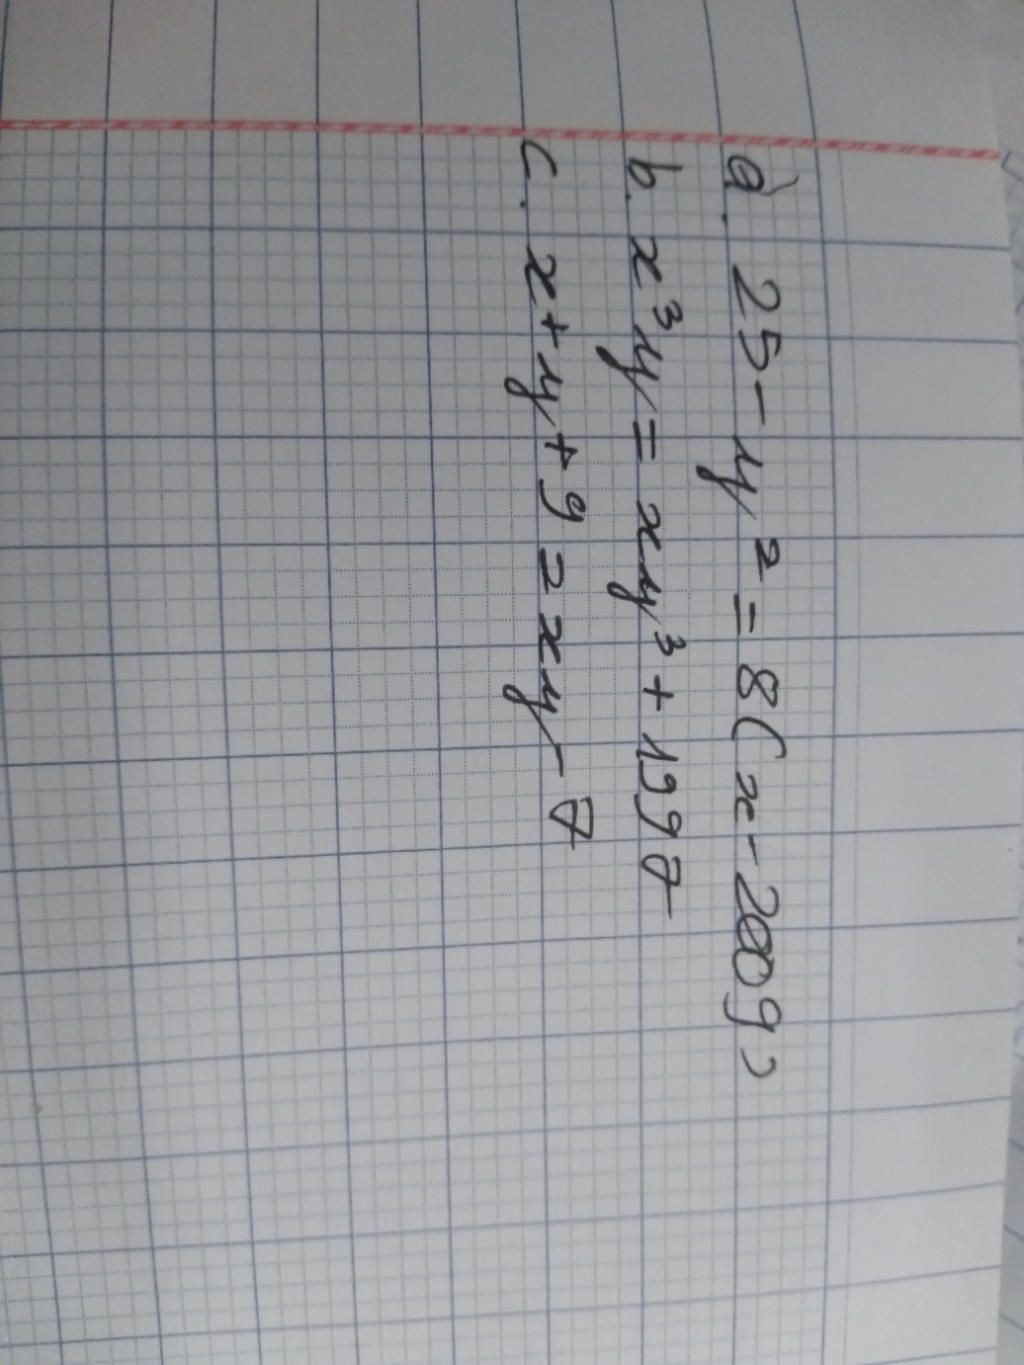 a. 25 - y² = 8(x - 2009)
b. x³y = xy³ + 1997
c. x + y + 9 = xy - 7